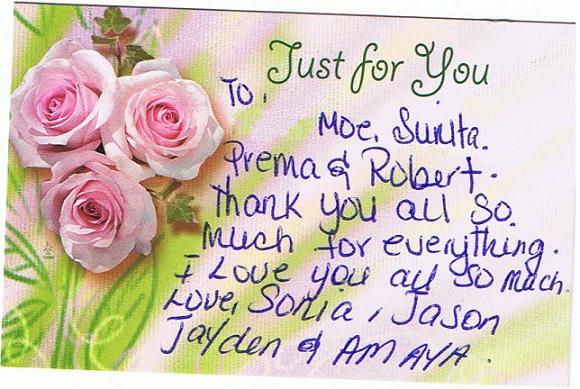 Just for You
To,
Moe, Sunita.
Prema & Robert.
Thank you all so.
Much for everything.
I Love you all so much.
Love, Sonia, Jason
Jayden & AMAYA.